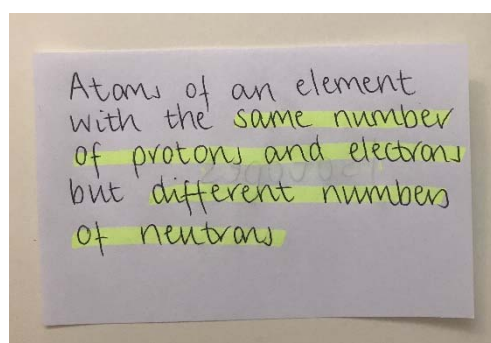 Atoms of an element
with the same number
of protons and electrons
but different numbers
of neutrons